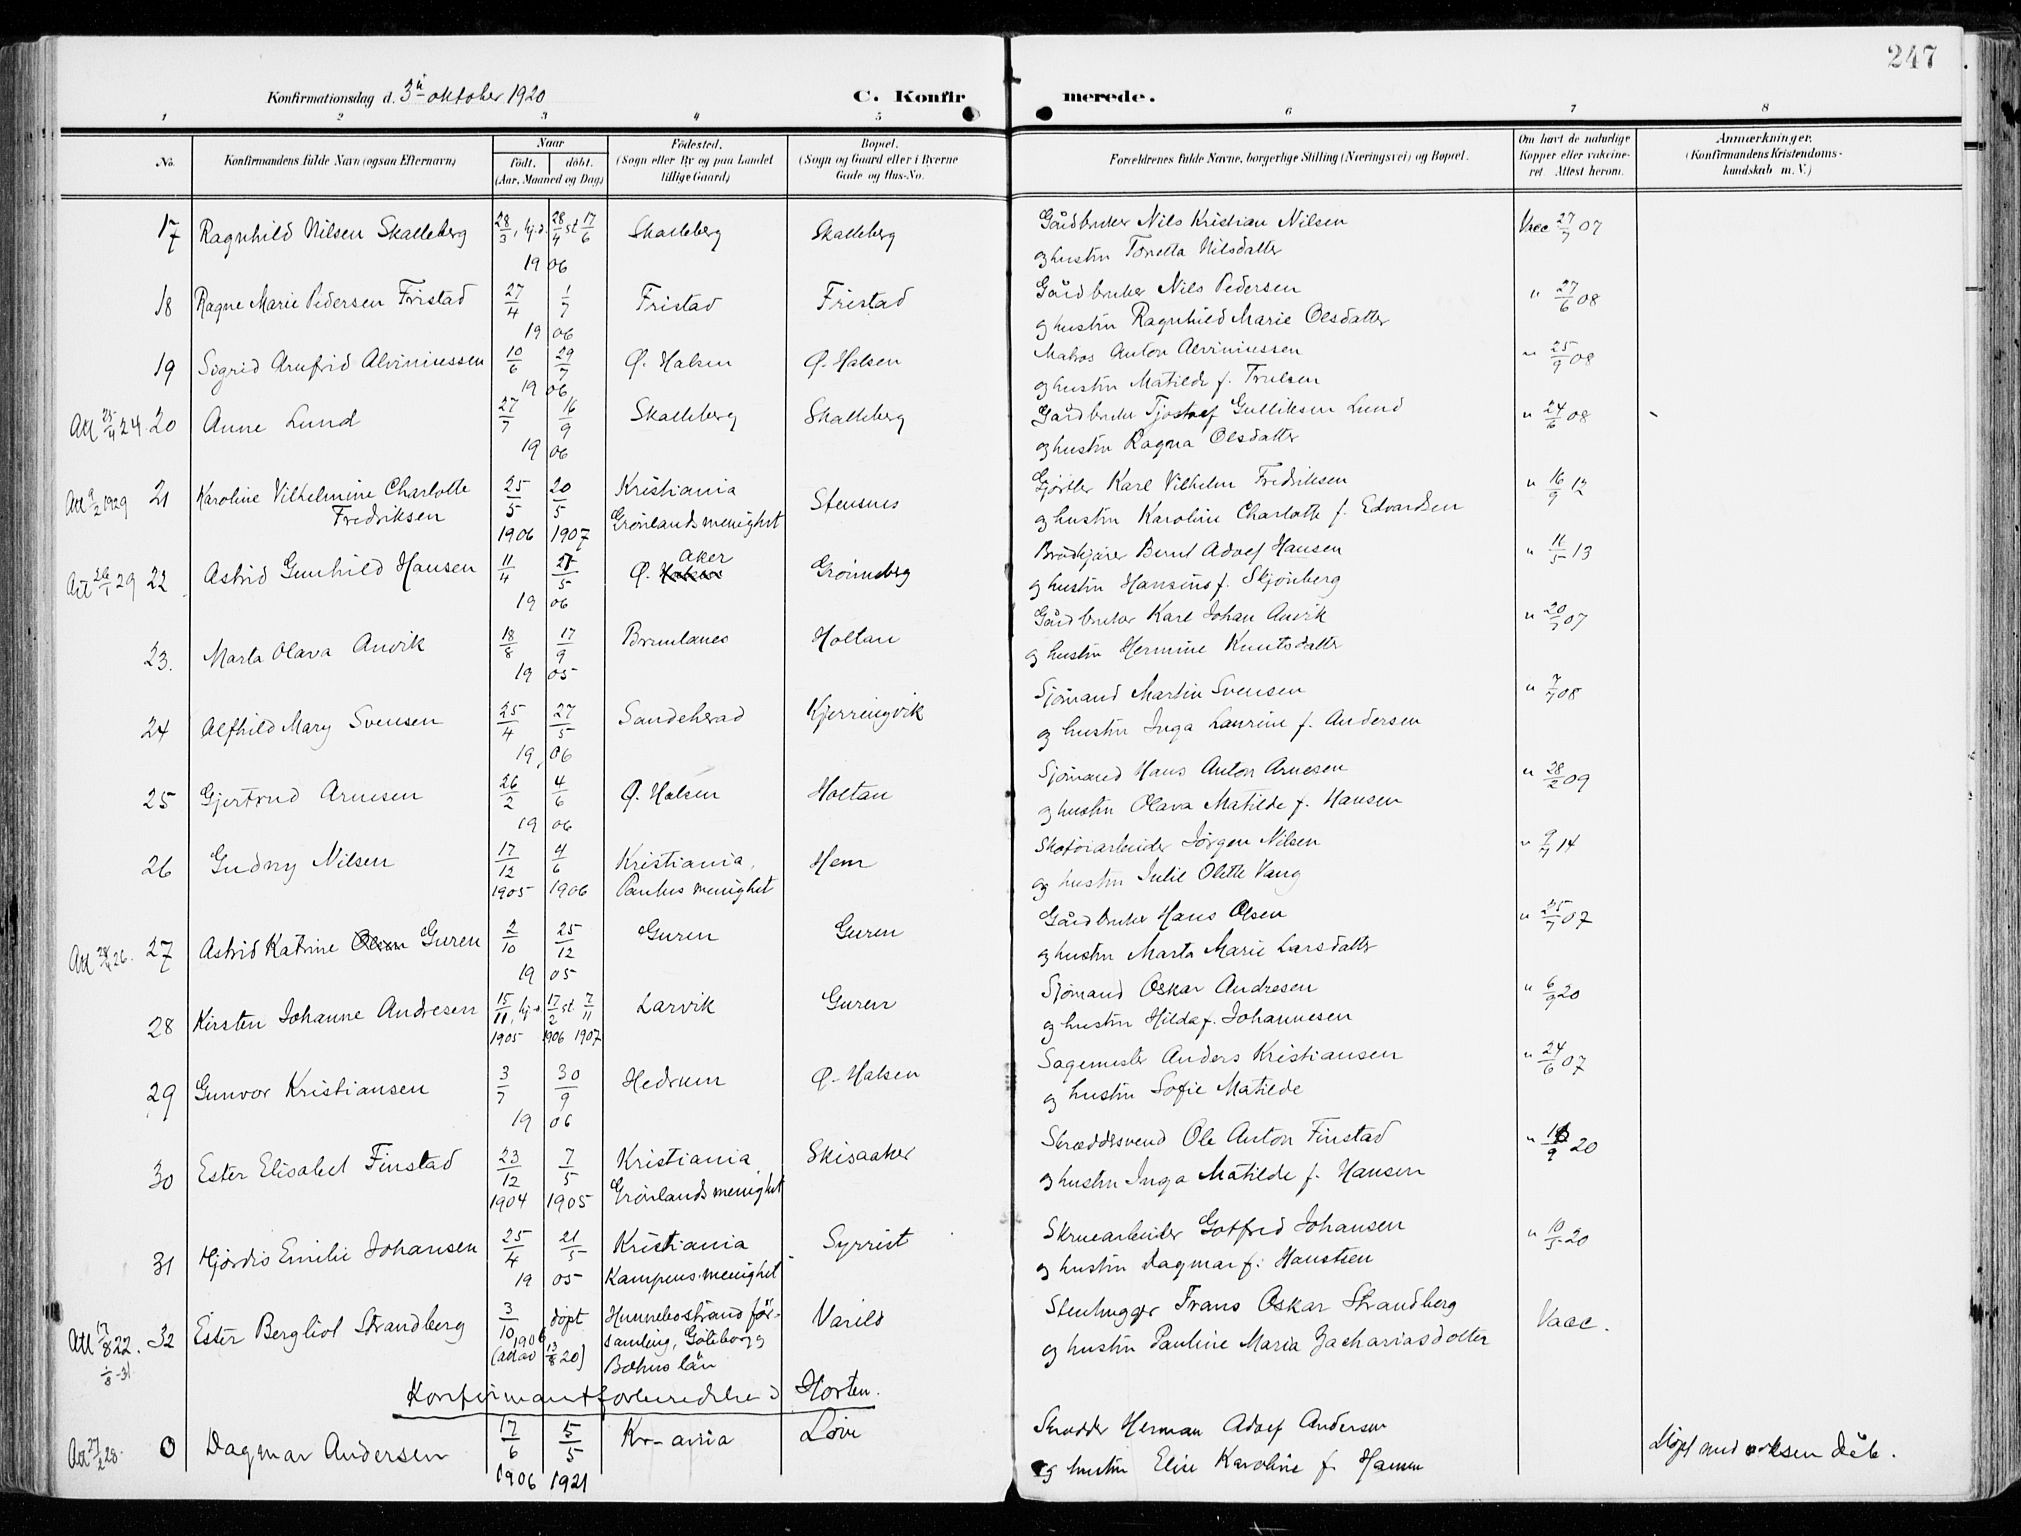 247
Konfirmationsdag d. 3die oktober 1920
C. Konfirmerede.
1 2 3 4 5 6 7 8
No.
Konfirmandens fulde Navn (ogsaa Efternavn)
Naar
født. døbt.
(Aar, Maaned og Dag)
Fødested.
(Sogn eller By og paa Landet
tillige Gaard)
Bopæl.
(Sogn og Gaard eller i Byerne
Gade og Hus-No.
Forældrenes fulde Navne, borgerlige Stilling (Næringsvei) og Bopæl.
Om havt de naturlige
Kopper eller vakcine-
ret Attest herom.
Anmærkninger.
(Konfirmandens Kristendoms-
kundskab m. V.)
17 Ragnhild Nilsen Skalleberg 28/3, hj.d. 28/4 st 17/6 Skalleberg Skalleberg Gårdbruker Nils Kristian Nilsen Vacc 27/7 07
1906 og hustru Tonetta Nilsdatter
18 Ragne Marie Pedersen Fristad 27/4 1/7 Fristad Fristad Gårdbruker Nils Pedersen " 27/6 08
1906 og hustru Ragnhild Marie Olsdatter
19 Sigrid Arnfrid Alviniussen 10/6 29/7 Ø. Halsen Ø. Halsen Matros Anton Alviniussen " 25/9 08
1906 og hustru Matilde f. Trulsen
Att 25/4 24 20 Anne Lund 27/7 16/9 Skalleberg Skalleberg Gårdbruker Tjostolf Gulliksen Lund " 24/6 08
1906 og hustru Ragna Olsdatter
Att 9/2 1929 21 Karoline Vilhelmine Charlotte 25/5 20/5 Kristiania Stensnes Gjørtler Karl Vilhelm Fredriksen " 16/9 12
Fredriksen 1906 1907 Grønlands menighet og hustru Karoline Charlotte f. Edvardsen
Att 26/1 29 22 Astrid Gunhild Hansen 11/4 27/5 Ø. Aker Grønneberg Brødkjører Bernt Adolf Hansen " 11/5 13
1906 og hustru Hansine f. Skjønberg
23. Marta Olava Anvik 18/8 17/9 Brunlanes Holtan Gårdbruker Karl Johan Anvik " 20/7 07
1905 og hustru Hermine Knutsdatter
24 Alfhild Mary Svensen 25/4 27/5 Sandeherad Kjerringvik Sjømand Martin Svensen " 7/7 08
1906 og hustru Inga Laurine f. Andersen
25 Gjertrud Arnesen 26/2 4/6 Ø. Halsen Holtan Sjømand Hans Anton Arnesen " 28/2 09
1906 og hustru Olava Matilde f. Hansen
26 Gudny Nilsen 17/12 4/6 Kristiania, Hem Skotøiarbeider Jørgen Nilsen " 9/7 14
1905 1906 Paulus menighet og hustru Julie Olette Vang
Att 26. 27 Astrid Katrine Olsen Guren 2/10 25/12 Guren Guren Gårdbruker Hans Olsen " 25/7 07
1905 og hustru Marta Marie Larsdatter
28 Kirsten Johanne Andresen 15/11, hj.d. 17/2 st. 7/11 Larvik Guren Sjømand Oskar Andresen " 6/9 20
1905 1906 1907 og hustru Hilda f. Johannesen
29 Gunvor Kristiansen 3/7 30/9 Hedrum Ø. Halsen Sagemester Anders Kristiansen " 24/6 07
1906 og hustru Sofie Matilde
30 Ester Elisabet Finstad 23/12 7/5 Kristiania Skisaaker Skræddersvend Ole Anton Finstad " 16/9 20
1904 1905 Grønlands menighet og hustru Inga Matilde f. Hansen
31 Hjørdis Emilie Johansen 25/4 21/5 Kristiania Syrrist Skruearbeider Gotfred Johansen " 10/5 20
1905 Kampens menighet og hustru Dagmar f. Hanstsen
Att 17/8 22. 32 Ester Bergliot Strandberg 3/10 døpt Hunnebostrand för- Varild Stenhugger Frans Oskar Strandberg Vacc.
1/8-31 1906 samling, Göteborg og og hustru Pauline Maria Zachariasdotter
(att av 13/8 20) Bohus län
Konfirmantforberedelse i Horten.
Att 27/2 28. 0 Dagmar Andersen 17/6 5/5 Kr-ania Løve Skrædder Herman Adolf Andersen Døpt med voksen dåb.
1906 1921 og hustru Elise Karoline f. Hansen